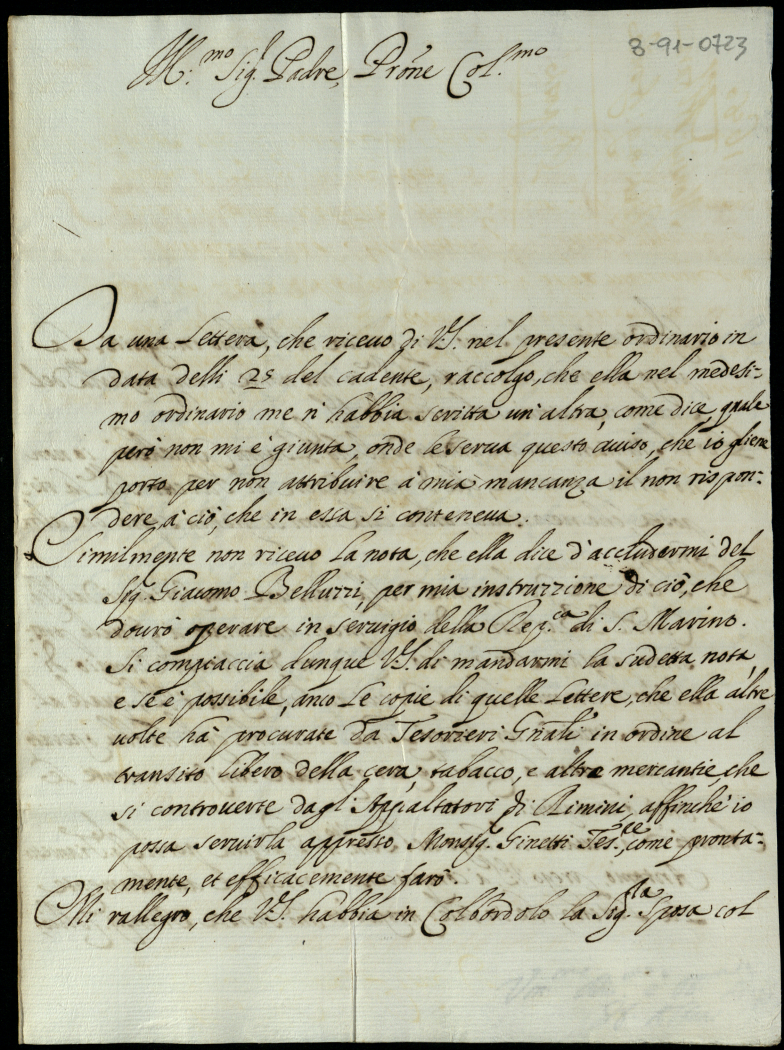 8-91-0723
Ill.mo Sig.r Padre, Prone Col.mo
Da una Lettera, che riceuo di V.S. nel presente ordinario in
data delli 25 del cadente, raccolgo, che ella nel medesi-
mo ordinario me n' habbia scritta un' altra, come dice, quale
però non mi è giunta, onde le serua questo auiso, che io gliene
porto per non attribuire à mia mancanza il non rispon-
dere à ciò, che in essa si conteneua.
Similmente non riceuo la nota, che ella dice d' accludermi del
Sig. Giacomo Belluzzi, per mia instruzzione di ciò, che
dourò operare in seruigio della Rep.ca di S. Marino.
Si compiaccia dunque V.S. di mandarmi la sudetta nota,
e se è possibile, anco le copie di quelle Lettere, che ella altre
uolte hà procurate da Tesorieri Gnali in ordine al
transito libero della cera, tabacco, e altre mercantie, che
si controuerte dagl' Appaltatori di Rimini, affinche io
possa seruirla appresso Monsig.r Ginetti Tes.re, come pronta-
mente, et efficacemente farò.
Mi rallegro, che V.S. habbia in Colbordolo la Sig.ra Sposa col